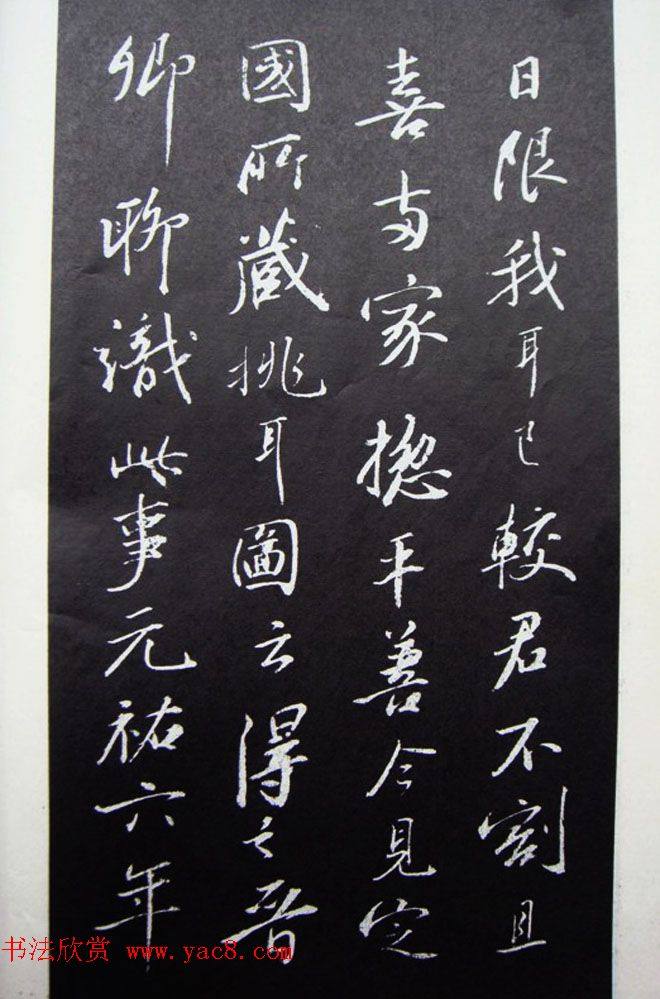 日限我耳已較君不割且
喜两家揔平善今見定
國所藏挑耳圖云得之晉
卿聊識此事元祐六年
书法欣赏 www.yac8.com